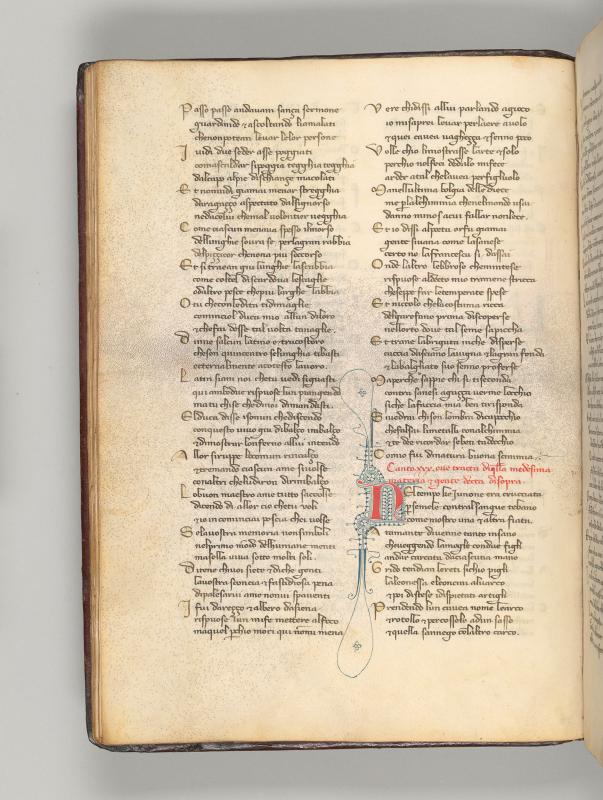 Passo passo andavam sança sermone
guardando & ascoltando liamalati
chenonpotean levar lelor persone
I vidi due seder asse poggiati
comascaldar sipoggia tegghia tegghia
dalcapo alpie dischançe macolati
Et nonvidi giamai menar stregghia
daragaçço aspectato dalsignorso
nedacolui chemal volontier vegghia
Come ciascun menava spesso ilmorso
dellunghie soura se perlagran rabbia
delpiççicor chenona piu soccorso
Et si traean giu lunghie lascabbia
come coltel discardova lescaglie
odaltro pesce chepiu larghe labbia
O tu checonledita tidismaglie
comincio lduca mio allun diloro
& chefai desse tal volta tanaglie
Dinne salcun latino e tracostoro
cheson quincentro selunghia tibasti
etternalmente acotesto lavoro
Latin siam noi chetu vedi siguasti
qui ambodue rispuose lun piangendo
ma tu chise chedinoi dimandasti
El duca disse isonun chediscendo
conquesto vivo giu dibalço inbalço
& dimostrar lonferno allui intendo
Allor siruppe locomun rincalço
& tremando ciascun ame sivolse
conaltri cheludiron dirimbalço
Lobuon maestro ame tutto saccolse
dicendo di allor cio chetu voli
& io incominciai poscia chei volse
Se lavostra memoria nonsimboli
nelprimo mondo dellhumane menti
masella viva sotto molti soli
Ditemi chivoi siete & diche genti
lavostra sconcia & fastidiosa pena
dipalesarvi ame nonvi spaventi
I fui dareçço & albero dasiena
rispuose lun mife mettere alfoco
maquel perchio mori qui nonmi mena
Vero chidissi allui parlando agioco
io misaprei levar perlaere avolo
& quei cavea vaghecça & senno poco
Volle chio limostrasse larte & solo
percho nolfeci dedalo mifece
arder atal chelavea perfigliuolo
Manellultima bolgia delle diece
me perlalchimia chenelmondo usai
danno minos acui fallar nonlece
Et io dissi alpoeta orfu giamai
gente sivana come lasanese
certo no lafrancesca si dassai
Onde laltro lebbroso chemintese
rispuose aldecto mio tramene stricca
cheseppe far letemperate spese
Et niccolo chelacostuma ricca
delgarofano prima discoperse
nellorto dove tal seme sapiccha
Et trane labrigata inche disperse
caccia dasciano lavigna & lagran fonda
& labalgliato suo senno proferse
Maperche sappie chi si tiseconda
contra sanesi aguçça verme locchio
siche lafaccia mia ben tirisponda
Sivedrai chison lombra dicapocchio
chefalsai limetalli conalchimmia
& te dee ricordar seben tadocchio
Como fui dinatura buona scimmia
Canto .xxx. ove tracta diquella medesima
materia & gente decta disopra
Neltempo ke Iunone era crucciata
per semele contral sangue tebano
come mostro una & altra fiata
Atamante divenne tanto insano
cheveggendo lamoglie condue figli
andar carcata daciascuna mano
Grido tendian lereti sichio pigli
laleonessa eleoncini alvarco
& poi distese idispietati artigli
Prendendo lun cavea nome learco
& rotollo & percossolo adun sasso
& quella sannego collaltro carco.